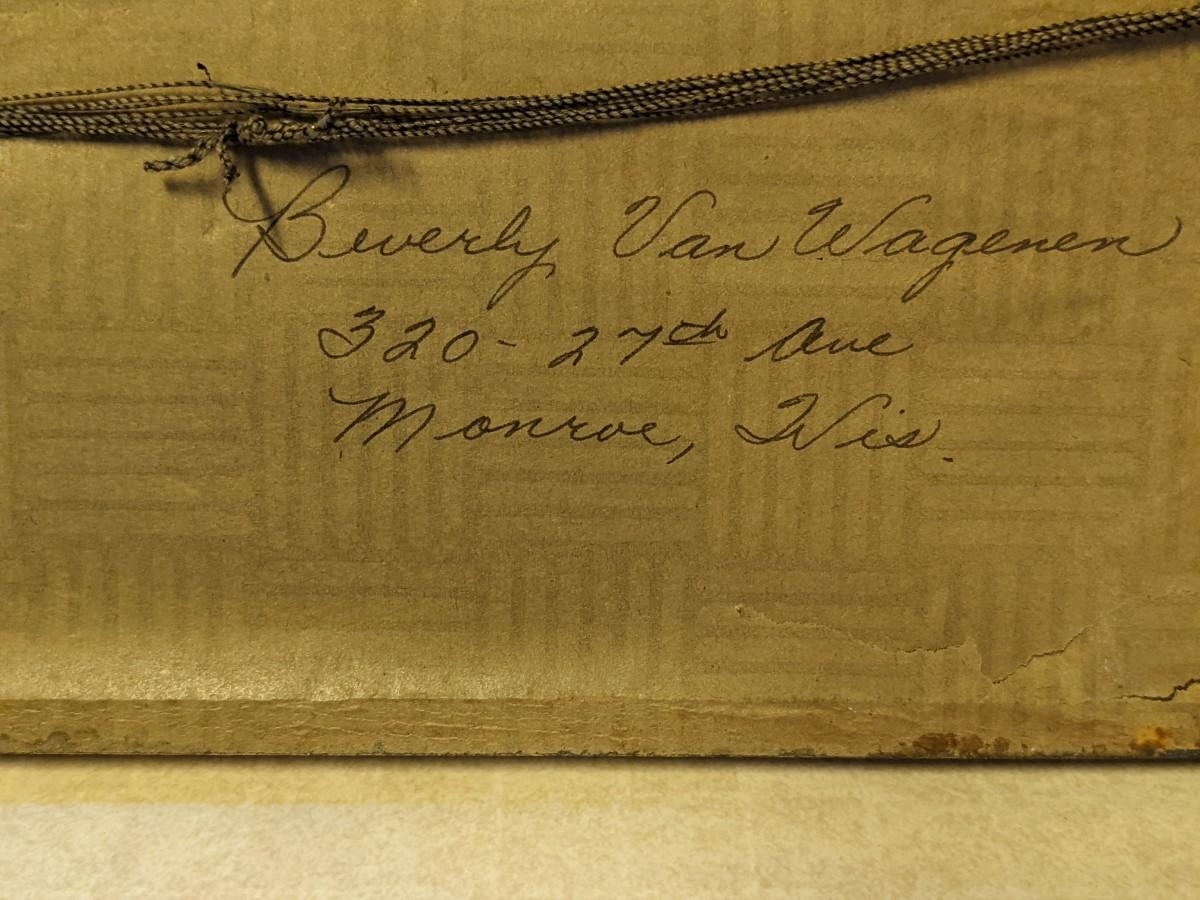 Beverly Van Wagenen
320 - 27th Ave
Monroe, Wis.